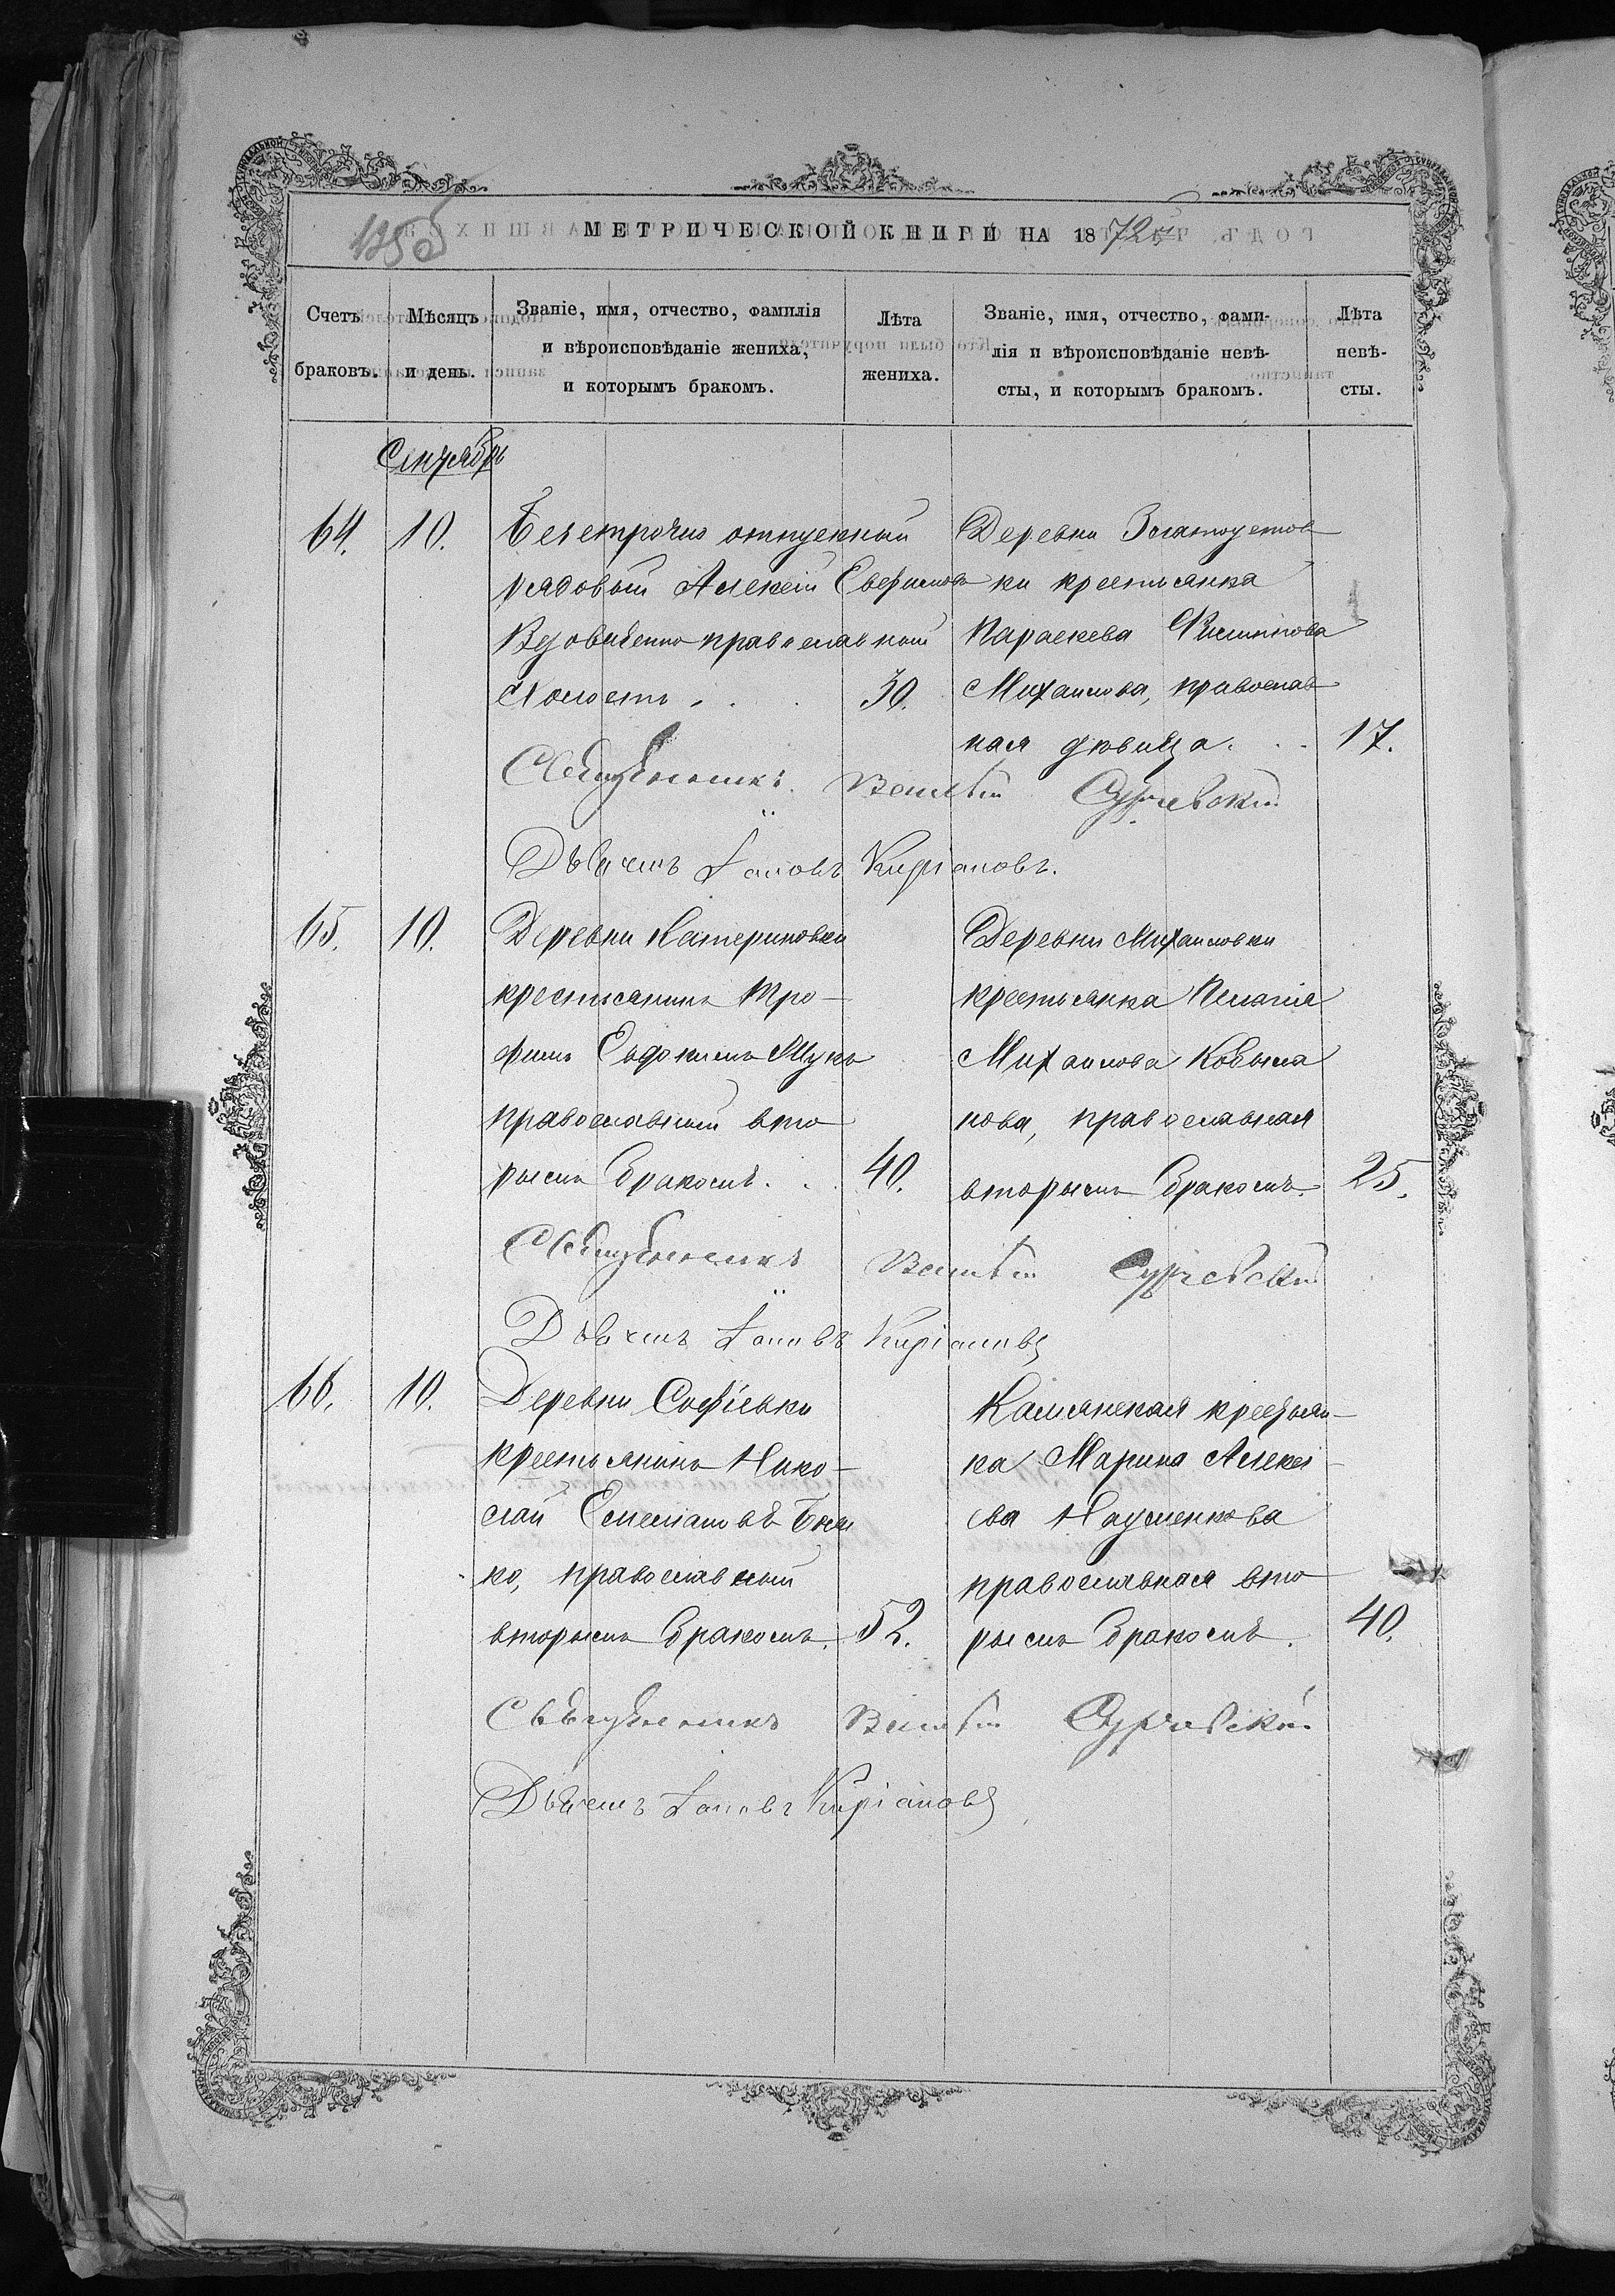 МЕТРИЧЕСКОЙ КНИГИ НА 1872й
Счетъ браковъ.
Мѣсяцъ и день.
Званіе, имя, отчество, фамилія
и вѣроисповѣданіе жениха,
и которымъ бракомъ.
Лѣта
жениха.
Званіе, имя, отчество, фами-
лія и вѣроисповѣданіе невѣ-
сты, и которымъ бракомъ.
Лѣта
невѣ-
сты.
Сентябрь
64.
10.
Безсрочно отпускной
рядовой Алексей
православный
Холостъ . .
30.
Деревни Златоустов
ки крестьянка
Параскева Филиппова
Михаилова, православ
ная дѣвица . .
17.
Священникъ
Дьячекъ Іаковъ Киріановъ.
65.
10.
Деревни Катериновки
крестьянинъ Тро-
фимъ Евдокимъ Щука
православный вто
рымъ бракомъ . .
40.
Деревни Михаиловки
крестьянка Пелагія
Михаилова Кобыля
кова, православная
вторымъ бракомъ.
25.
Священникъ
Дьячекъ Іаковъ Киріановъ
66.
10.
Деревни Софіевки
крестьянинъ Нико-
лай Емеліановъ
ко, православный
вторымъ бракомъ.
52.
Камянская крестьян-
ка Марина Алексѣ-
ева Науменкова
православная вто
рымъ бракомъ.
40.
Священникъ
Дьячекъ Іаковъ Киріановъ